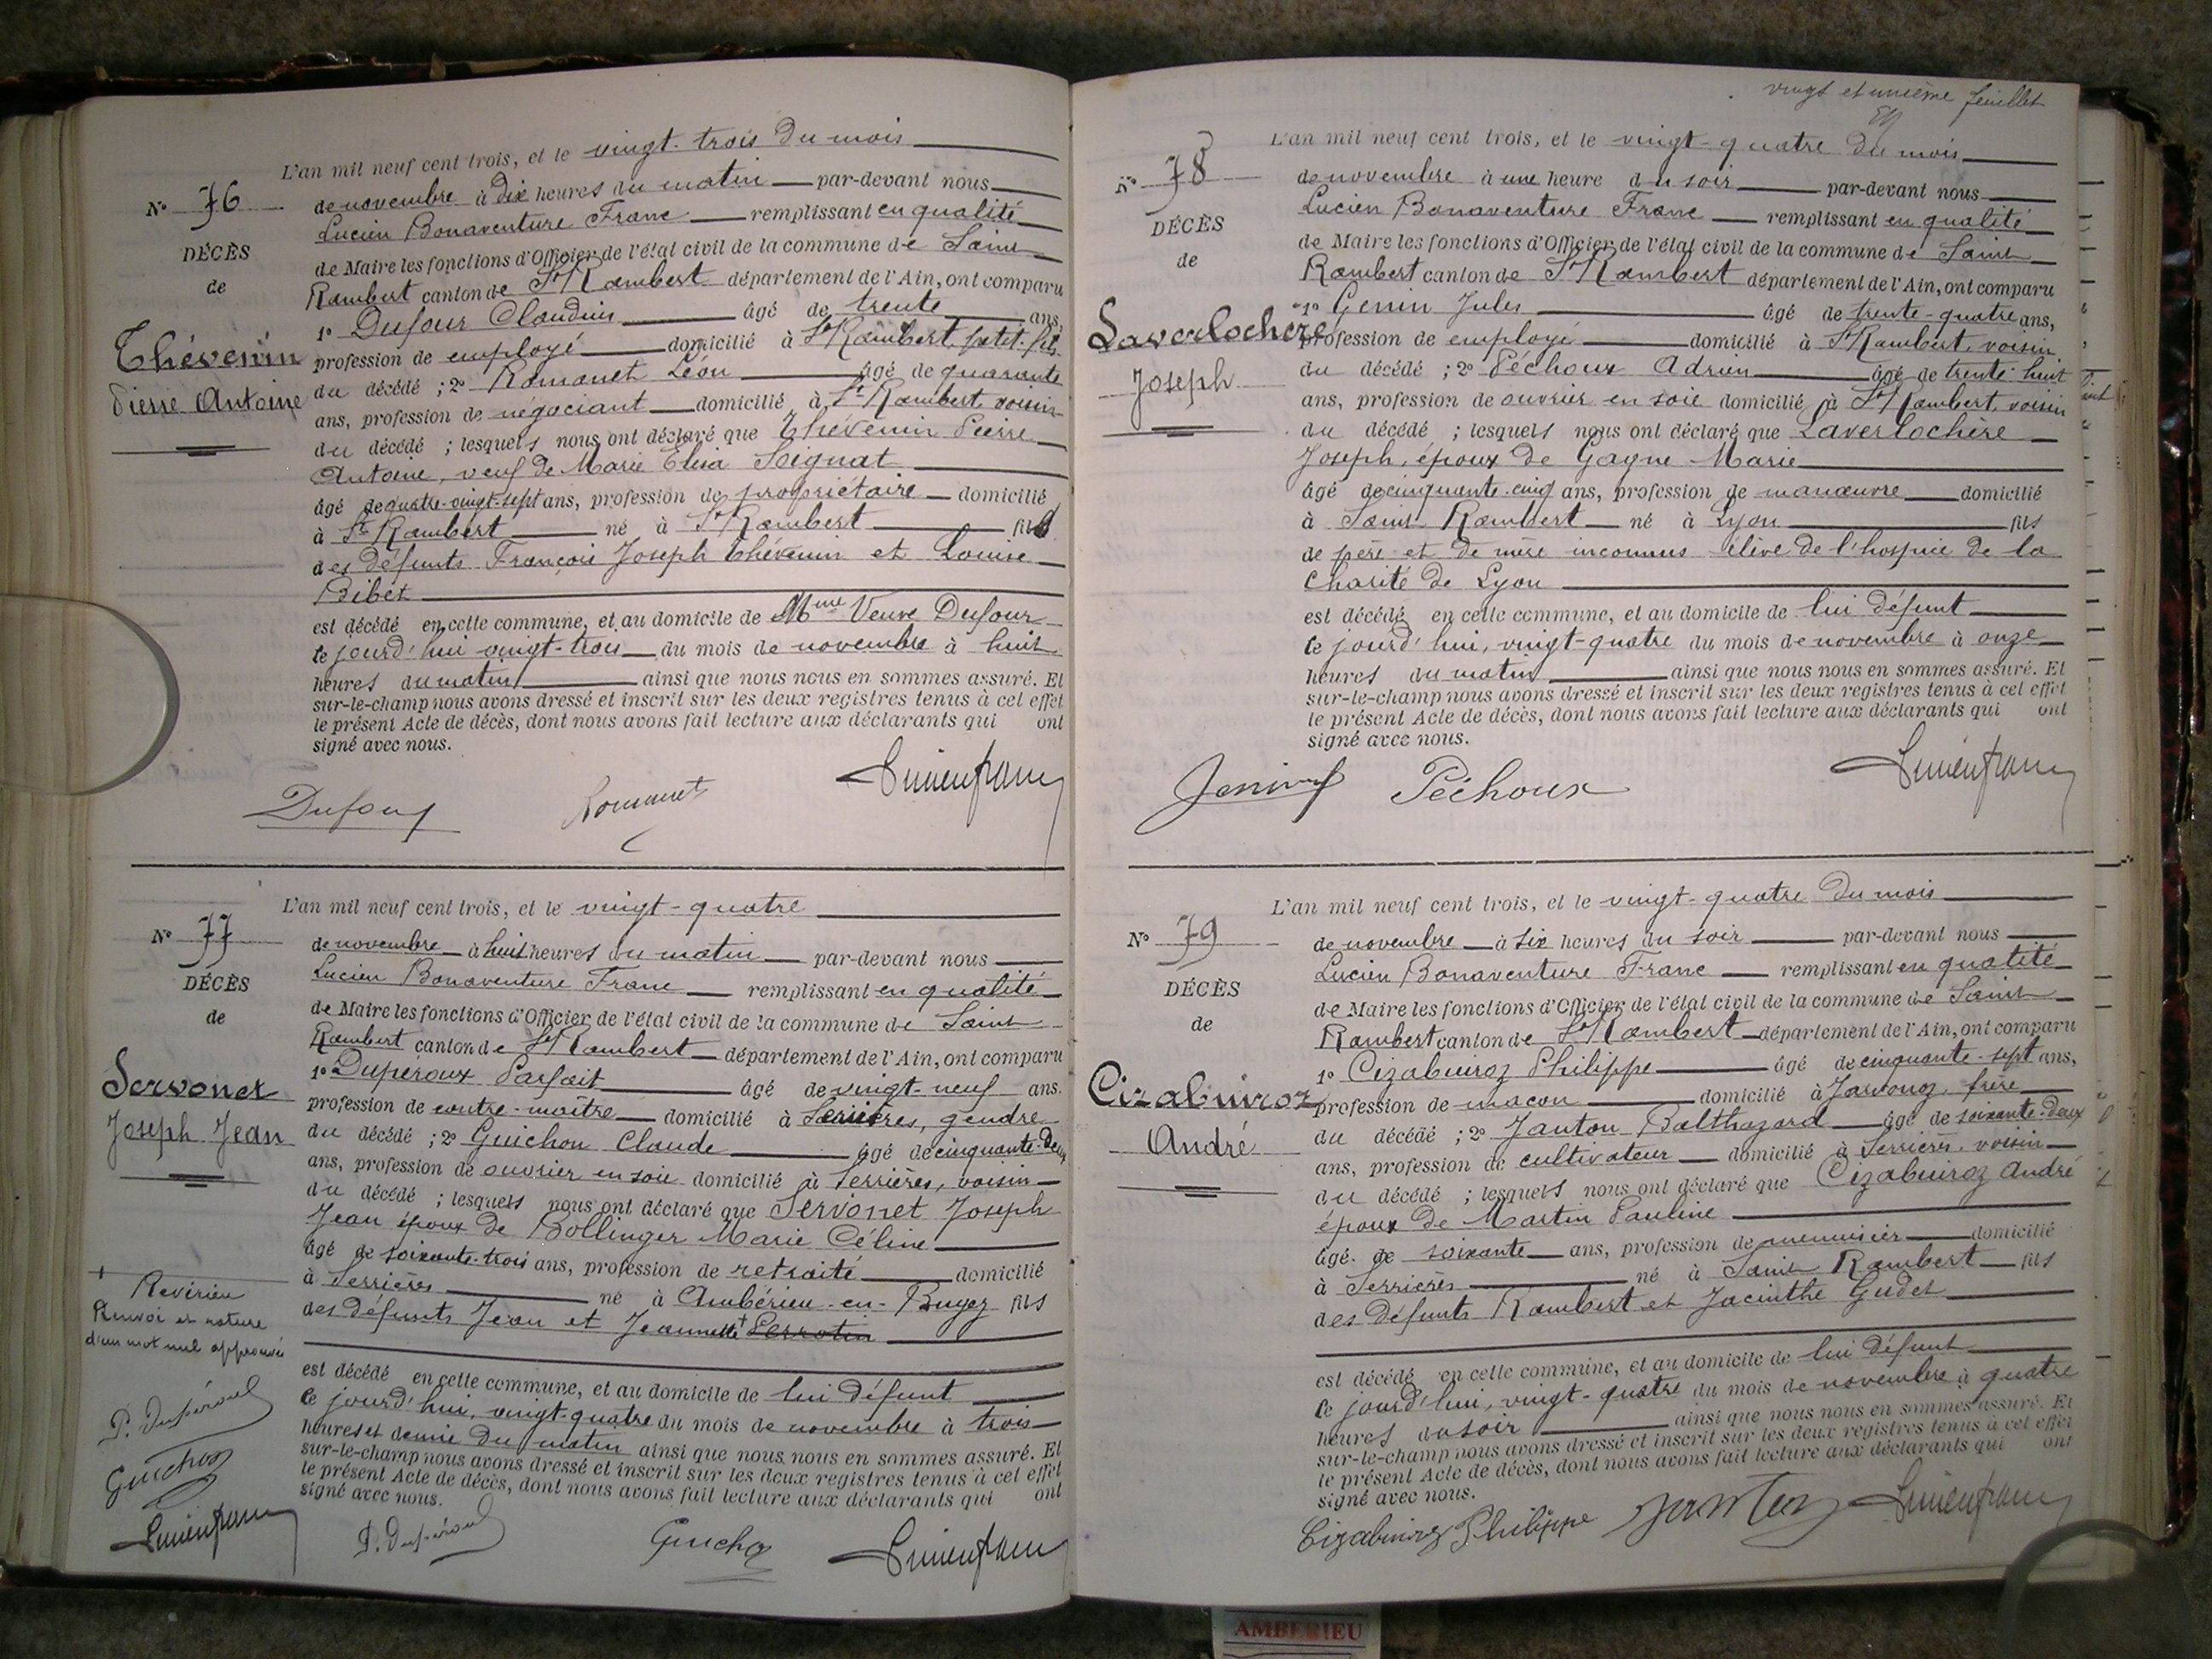 L'an mil neuf cent trois, et le vingt-trois du mois
N° 76
de novembre à dix heures du matin par-devant nous
Lucien Bonaventure Franc remplissant en qualité
DÉCÈS
de Maire les fonctions d'Officier de l'état civil de la commune de Saint
de
Rambert canton de St Rambert département de l'Ain, ont comparu
1° Dufour Claudius âgé de trente ans,
Thévenin
profession de employé domicilié à St Rambert, petit-fils
Pierre Antoine
du décédé ; 2° Romanet Léon âgé de quarante
ans, profession de négociant domicilié à St Rambert, voisin
du décédé ; lesquels nous ont déclaré que Thévenin Pierre
Antoine, veuf de Marie Elisa Soignat
âgé de quatre-vingt-sept ans, profession de propriétaire domicilié
à St Rambert né à St Rambert fils
des défunts François Joseph Thévenin et Louise
Bibet
est décédé en cette commune, et au domicile de Mme Veuve Dufour
ce jourd'hui vingt-trois du mois de novembre à huit
heures du matin ainsi que nous nous en sommes assuré. Et
sur-le-champ nous avons dressé et inscrit sur les deux registres tenus à cet effet
le présent Acte de décès, dont nous avons fait lecture aux déclarants qui ont
signé avec nous.
Dufour Romanet Lucien franc
L'an mil neuf cent trois, et le vingt-quatre
N° 77
de novembre à huit heures du matin par-devant nous
Lucien Bonaventure Franc remplissant en qualité
DÉCÈS
de Maire les fonctions d'Officier de l'état civil de la commune de Saint
de
Rambert canton de St Rambert département de l'Ain, ont comparu
1° Dupéroux Parfait âgé de vingt-neuf ans.
Servonet
profession de contre-maître domicilié à Serrières, gendre
Joseph Jean
du décédé ; 2° Guichon Claude âgé de cinquante-deux
ans, profession de ouvrier en soie domicilié à Serrières, voisin
du décédé ; lesquels nous ont déclaré que Servonet Joseph
Jean époux de Bollinger Marie Céline
âgé de soixante-trois ans, profession de retraité domicilié
à Serrières né à Ambérieu-en-Bugey fils
des défunts Jean et Jeannette +
+ Revérieu
Renvoi et rature
d'un mot nul approuvés
est décédé en cette commune, et au domicile de lui défunt
ce jourd'hui, vingt-quatre du mois de novembre à trois
heures et demie du matin ainsi que nous nous en sommes assuré. Et
sur-le-champ nous avons dressé et inscrit sur les deux registres tenus à cet effet
le présent Acte de décès, dont nous avons fait lecture aux déclarants qui ont
signé avec nous.
P. Dupéroux
Guichon
Lucien franc
P. Dupéroux Guichon Lucien franc
vingt et unième feuillet
L'an mil neuf cent trois, et le vingt-quatre du mois
N° 78
de novembre à une heure du soir par-devant nous
Lucien Bonaventure Franc remplissant en qualité
DÉCÈS
de Maire les fonctions d'Officier de l'état civil de la commune de Saint
de
Rambert canton de St Rambert département de l'Ain, ont comparu
1° Genin Jules âgé de trente-quatre ans,
Laverlochere
profession de employé domicilié à St Rambert, voisin
Joseph
du décédé ; 2° Péchoux Adrien âgé de trente huit
ans, profession de ouvrier en soie domicilié à St Rambert, voisin
du décédé ; lesquels nous ont déclaré que Laverlochere
Joseph, époux de Gagne Marie
âgé de cinquante-cinq ans, profession de manœuvre domicilié
à Saint Rambert né à Lyon fils
de père et de mère inconnus élève de l'hospice de la
charité de Lyon
est décédé en cette commune, et au domicile de lui défunt
ce jourd'hui, vingt-quatre du mois de novembre à onze
heures du matin ainsi que nous nous en sommes assuré. Et
sur-le-champ nous avons dressé et inscrit sur les deux registres tenus à cet effet
le présent Acte de décès, dont nous avons fait lecture aux déclarants qui ont
signé avec nous.
Péchoux Lucien franc
L'an mil neuf cent trois, et le vingt-quatre du mois
N° 79
de novembre à six heures du soir par-devant nous
Lucien Bonaventure Franc remplissant en qualité
DÉCÈS
de Maire les fonctions d'Officier de l'état civil de la commune de Saint
de
Rambert canton de St Rambert département de l'Ain, ont comparu
1° Cizabuiroz Philippe âgé de cinquante-sept ans,
Cizabuiroz
profession de maçon domicilié à Javornoz, frère
André
du décédé ; 2° Janton Balthazard âgé de soixante-deux
ans, profession de cultivateur domicilié à Serrières, voisin
du décédé ; lesquels nous ont déclaré que Cizabuiroz André
époux de Martin Pauline
âgé de soixante ans, profession de menuisier domicilié
à Serrières né à Saint Rambert fils
des défunts Rambert et Jacinthe Gudet
est décédé en cette commune, et au domicile de lui défunt
ce jourd'hui, vingt-quatre du mois de novembre à quatre
heures du soir ainsi que nous nous en sommes assuré. Et
sur-le-champ nous avons dressé et inscrit sur les deux registres tenus à cet effet
le présent Acte de décès, dont nous avons fait lecture aux déclarants qui ont
signé avec nous.
Cizabuiroz Philippe Janton Lucien franc
AMBERIEU